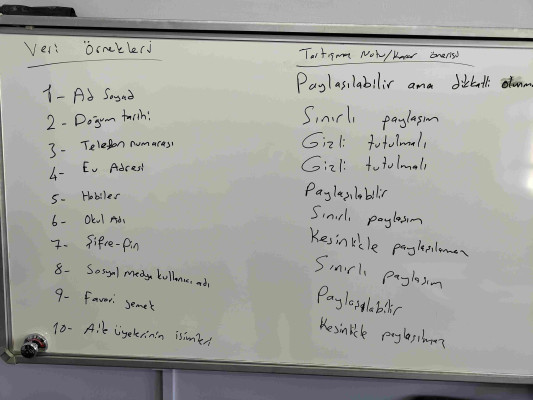 Veri Örnekleri
Tartışma Notu/Karar önerisi
1- Ad Soyad
Paylaşılabilir ama dikkatli olunma
2- Doğum tarihi
Sınırlı paylaşım
3- Telefon numarası
Gizli tutulmalı
4- Ev Adresi
Gizli tutulmalı
5- Hobiler
Paylaşılabilir
6- Okul Adı
Sınırlı paylaşım
7- Şifre-Pin
Kesinlikle paylaşılamaz
8- Sosyal medya kullanıcı adı
Sınırlı paylaşım
9- Favori yemek
Paylaşılabilir
10- Aile üyelerinin isimleri
Kesinlikle paylaşılmaz